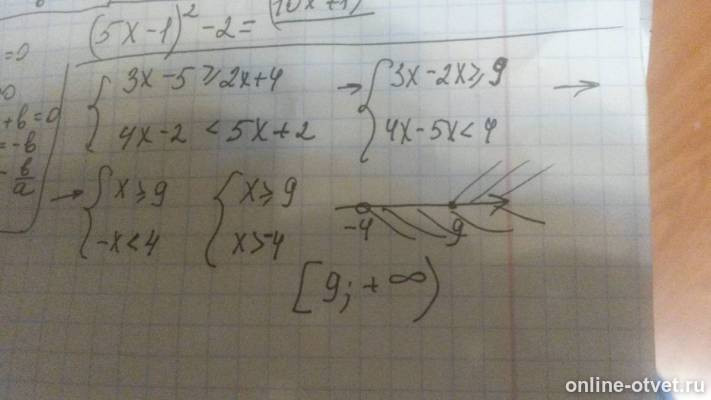 (5x-1)² -2 = (10x+1)
=0
+b=0
=-b
-b/a
{ 3x-5 ≥ 2x+4 → { 3x-2x ≥ 9 →
4x-2 < 5x+2 4x-5x < 4
→ { x ≥ 9 { x ≥ 9
-x < 4 x > -4
-4 9
[9; +∞)
online-otvet.ru